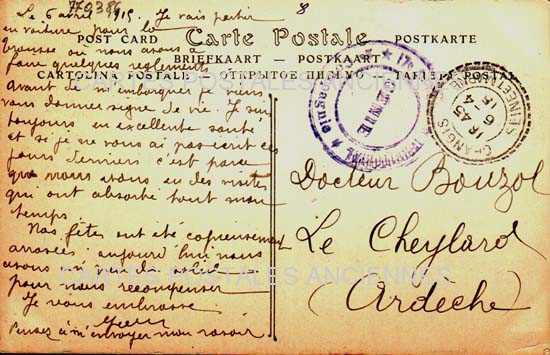 779386
8
Le 6 avril 1915. Je vais partir
en voiture pour la
brousse où nous avons à
faire quelques règlements
avant de m'embarquer je
vous donne signe de vie. Je suis
toujours en excellente santé
et si je ne vous ai pas écrit ces
jours derniers c'est parce
que nous avons eu des visites
qui ont absorbé tout mon
temps.
Nos fêtes ont été copieusement
arrosées, aujourd'hui nous
avons un peu de soleil
pour nous récompenser
Je vous embrasse
Pensez à m'envoyer mon rasoir
POST CARD Carte Postale POSTKARTE
BRIEFKAART - POSTKAART
CARTOLINA POSTALE - ОТКРЫТОЕ ПИСЬМО -
CARTES POSTALES ANCIENNES
CHANGIS
SEINE-ET-M
18 45
6 4
15
Docteur Bouzol
Le Cheylard
(Ardèche)
CARTES POSTALES ANCIENNES